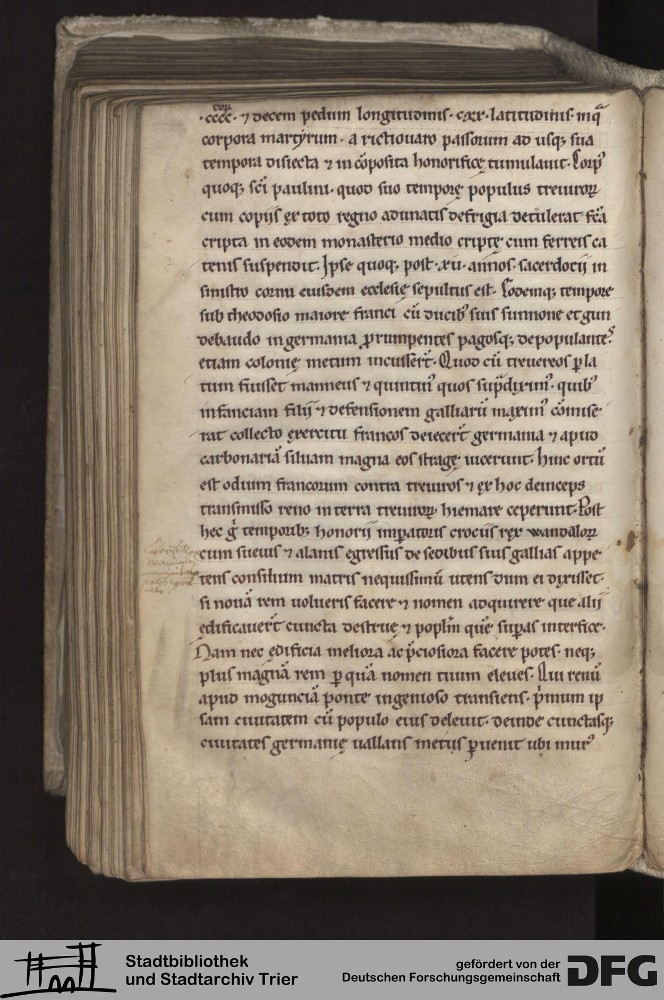 ·cccc· ⁊ decem pedum longitudinis· cxx· latitudinis· inq̃
corpora martyrum· a rictiouaro passorum ad usq; sua
tempora disiecta ⁊ in cōposita honorificę tumulauit· Corpꝰ
quoq; sc̄i paulini· quod suo temporę populus treuiroꝝ
cum copijs ex toto regno adunatis defrigia detulerat fcā
cripta in eodem monasterio medio criptę cum ferreis ca
tenis suspendit· Ipse quoq; post· xii· annos· sacerdocij in
sinistro cornu eiusdem ecclesię sepultus est· Eodemq; tempore
sub theodosio maiore franci cū ducibꝰ suis sunnone et gun
debaudo in germania ꝓrumpentes pagosq; depopulantes
etiam colonię metum incusser̄t· Quod cū treuereos ꝑla
tum fuisset manneus ⁊ quintinꝰ quos sup̄diximꝰ· quibꝰ
infanciam filij ⁊ defensionem galliarū maximꝰ cōmise
rat collecto exercitu francos deiecer̄t germania ⁊ apud
carbonariā siluam magna eos stragę uicerunt· Hinc ortū
est odium francorum contra treuiros ⁊ ex hoc deinceps
transmisso reno in terra treuiroꝝ hiemare ceperunt· Post
hec g̃ temporibꝫ honorij imꝑatoris crocus rex wandaloꝝ
cum sueuis ⁊ alanis egressus de sedibus suis gallias appe
tens consilium matris nequissimū utens dum ei dixisset·
si nouā rem uolueris facere ⁊ nomen adquirere que alij
ędificauer̄t cuncta destruę ⁊ popl̄m quē suꝑas interfice·
Nam nec ędificia meliora ac p̄ciosiora facere potes· neq;
plus magnā rem ꝑ quā nomen tuum eleues· Qui renū
apud mogunciā ponte ingenioso transiens· p̄mum ip
sam ciuitatem cū populo eius deleuit· deinde cunctasq;
ciuitates germanię uallans metus ꝑuenit ubi murꝰ
Stadtbibliothek
und Stadtarchiv Trier
gefördert von der
Deutschen Forschungsgemeinschaft
DFG